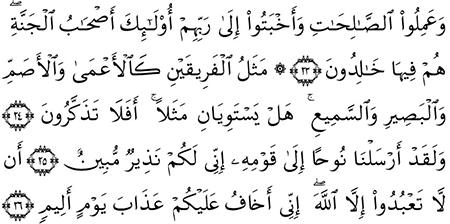 وَعَمِلُوا۟ ٱلصَّـٰلِحَـٰتِ وَأَخْبَتُوٓا۟ إِلَىٰ رَبِّهِمْ أُو۟لَـٰٓئِكَ أَصْحَـٰبُ ٱلْجَنَّةِ ۖ
هُمْ فِيهَا خَـٰلِدُونَ ﴿٢٣﴾ ۞ مَثَلُ ٱلْفَرِيقَيْنِ كَٱلْأَعْمَىٰ وَٱلْأَصَمِّ
وَٱلْبَصِيرِ وَٱلسَّمِيعِ ۚ هَلْ يَسْتَوِيَانِ مَثَلًا ۚ أَفَلَا تَذَكَّرُونَ ﴿٢٤﴾
وَلَقَدْ أَرْسَلْنَا نُوحًا إِلَىٰ قَوْمِهِۦٓ إِنِّى لَكُمْ نَذِيرٌ مُّبِينٌ ﴿٢٥﴾ أَن
لَّا تَعْبُدُوٓا۟ إِلَّا ٱللَّهَ ۖ إِنِّىٓ أَخَافُ عَلَيْكُمْ عَذَابَ يَوْمٍ أَلِيمٍ ﴿٢٦﴾